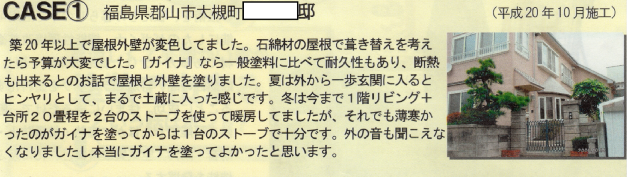 CASE① 福島県郡山市大槻町 邸 （平成20年10月施工）
築20年以上で屋根外壁が変色してました。石綿材の屋根で葺き替えを考え
たら予算が大変でした。『ガイナ』なら一般塗料に比べて耐久性もあり、断熱
も出来るとのお話で屋根と外壁を塗りました。夏は外から一歩玄関に入ると
ヒンヤリとして、まるで土蔵に入った感じです。冬は今まで１階リビング＋
台所２０畳程を２台のストーブを使って暖房してましたが、それでも薄寒か
ったのがガイナを塗ってからは１台のストーブで十分です。外の音も聞こえな
くなりましたし本当にガイナを塗ってよかったと思います。